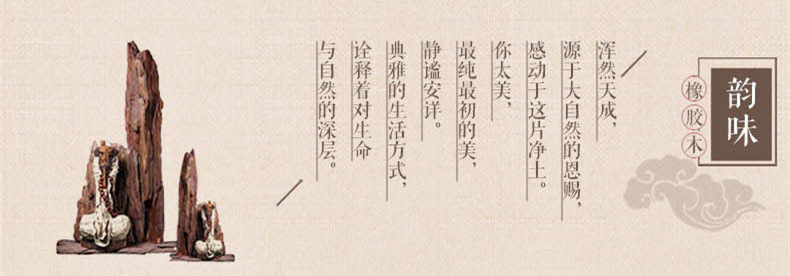 韵味
橡胶木
浑然天成，
源于大自然的恩赐，
感动于这片净土。
你太美，
最纯最初的美，
静谧安详。
典雅的生活方式，
诠释着对生命
与自然的深层。